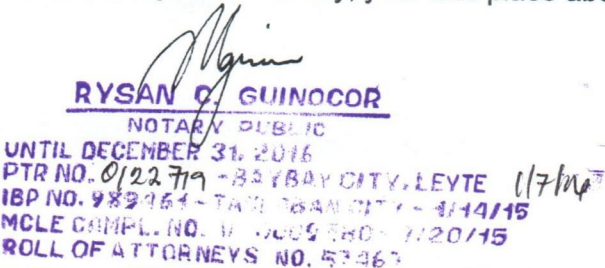 place
RYSAN C. GUINOCOR
NOTARY PUBLIC
UNTIL DECEMBER 31, 2016
PTR NO. 0122719 - BAYBAY CITY, LEYTE 1/7/16
IBP NO. - CITY - 1/14/15
MCLE COMPL. NO. /20/15
ROLL OF ATTORNEYS NO.